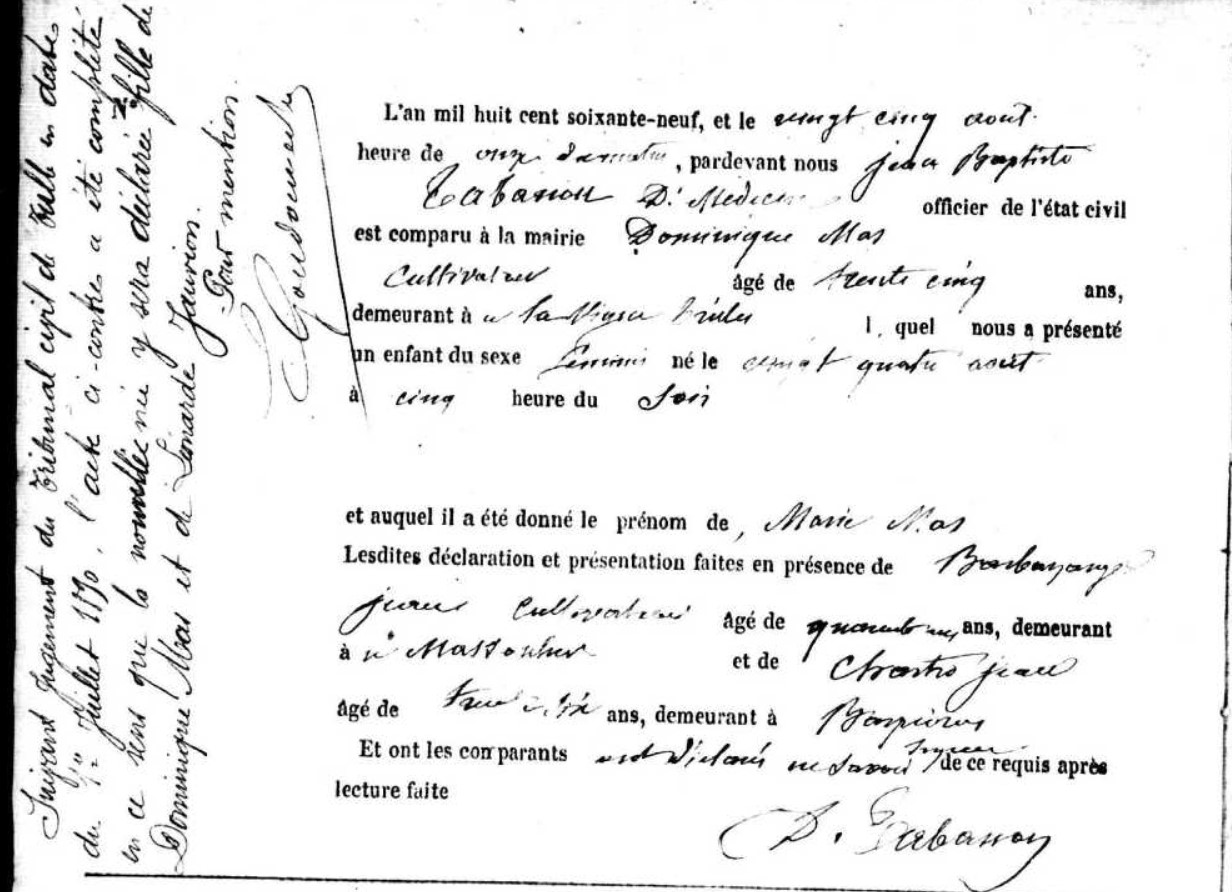 Suivant Jugement du Tribunal civil de Tulle en date
du 1er Juillet 1890, l'acte ci-contre a été complété
en ce sens que la nommée y sera déclarée fille de
Dominique Mas et de Léonarde Jauvion.
Pour mention.
L'an mil huit cent soixante-neuf, et le vingt cinq aout
heure de onze du matin, pardevant nous jean Baptiste
Tabanon Dr Medecin officier de l'état civil
est comparu à la mairie Dominique Mas
Cultivateur âgé de trente cinq ans,
demeurant à l quel nous a présenté
un enfant du sexe féminin né le vingt quatre août
à cinq heure du Soir
et auquel il a été donné le prénom de, Marie Mas
Lesdites déclaration et présentation faites en présence de
Cultivateur âgé de ans, demeurant
à et de jean
âgé de ans, demeurant à
Et ont les comparants ont déclaré ne Savoir signer de ce requis après
lecture faite
D. Tabanon